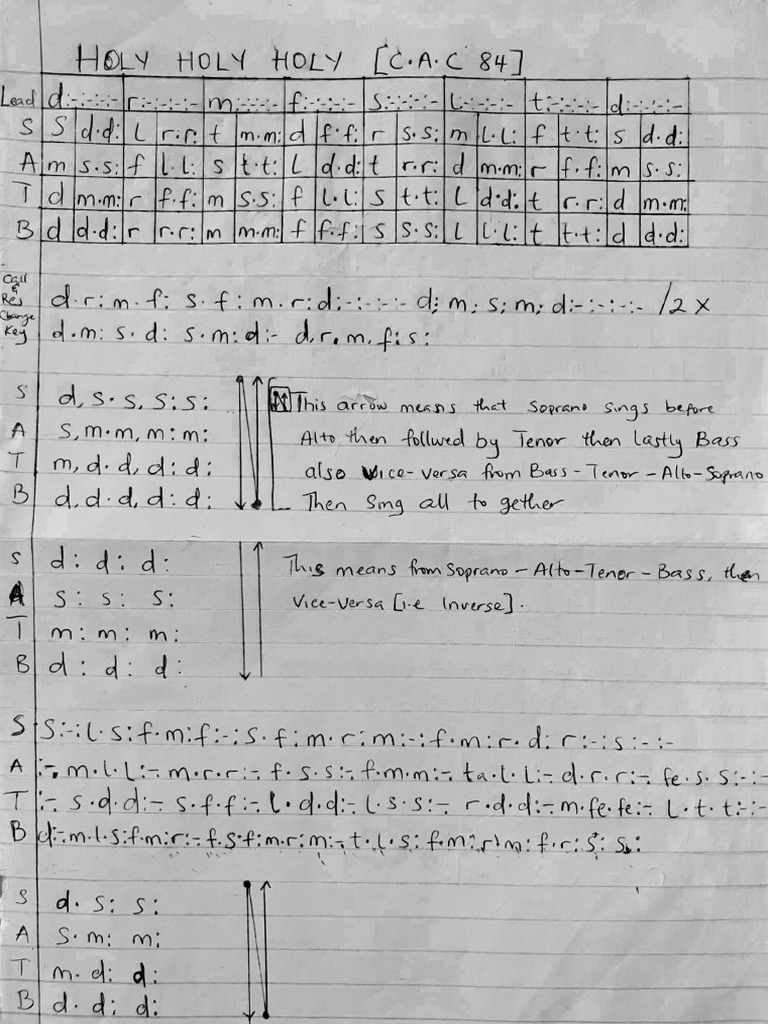 HOLY HOLY HOLY [C.A.C 84]
Lead d:-:-:-:- r:-:-:-:- m:-:-:-:- f:-:-:-:- s:-:-:-:- l:-:-:-:- t:-:-:-:- d:-:-:-:-
S S d.d: l r.r: t m.m: d f.f: r s.s: m l.l: f t.t: s d.d:
A m s.s: f l.l: s t.t: l d.d: t r.r: d m.m: r f.f: m s.s:
T d m.m: r f.f: m s.s: f l.l: s t.t: l d.d: t r.r: d m.m:
B d d.d: r r.r: m m.m: f f.f: s s.s: l l.l: t t.t: d d.d:
Call & Res d.r: m.f: s.f: m.r: d:-:-:-:- d: m: s: m: d:-:-:-:- /2 X
Change Key d.m: s.d: s.m: d:- d.r.m.f: s:
S d, s.s, s: s: This arrow means that Soprano sings before
A s, m.m, m: m: Alto then follwed by Tenor then lastly Bass
T m, d.d, d: d: also vice-versa from Bass-Tenor-Alto-Soprano
B d, d.d, d: d: Then Sing all to gether
S d: d: d: This means from Soprano-Alto-Tenor-Bass, then
A s: s: s: Vice-versa [i.e Inverse].
T m: m: m:
B d: d: d:
S S:-:l.s: f.m: f:-: s.f: m.r: m:-: f.m: r.d: r:-: s:-:-
A :-. m.l.l:-. m.r.r:-. f.s.s:-. f.m.m:-. ta.l.l:-. d.r.r:-. fe.s.s:-:-
T :-. s.d.d:-. s.f.f:-. l.d.d:-. l.s.s:-. r.d.d:-. m.fe.fe:-. l.t.t:-:-
B d:-.m.l.s: f.m: r:-. f.s.f: m.r: m:-. t.l.s: f.m: r.m: f.r: s: s:
S d. s: s:
A s. m: m:
T m. d: d:
B d. d: d: